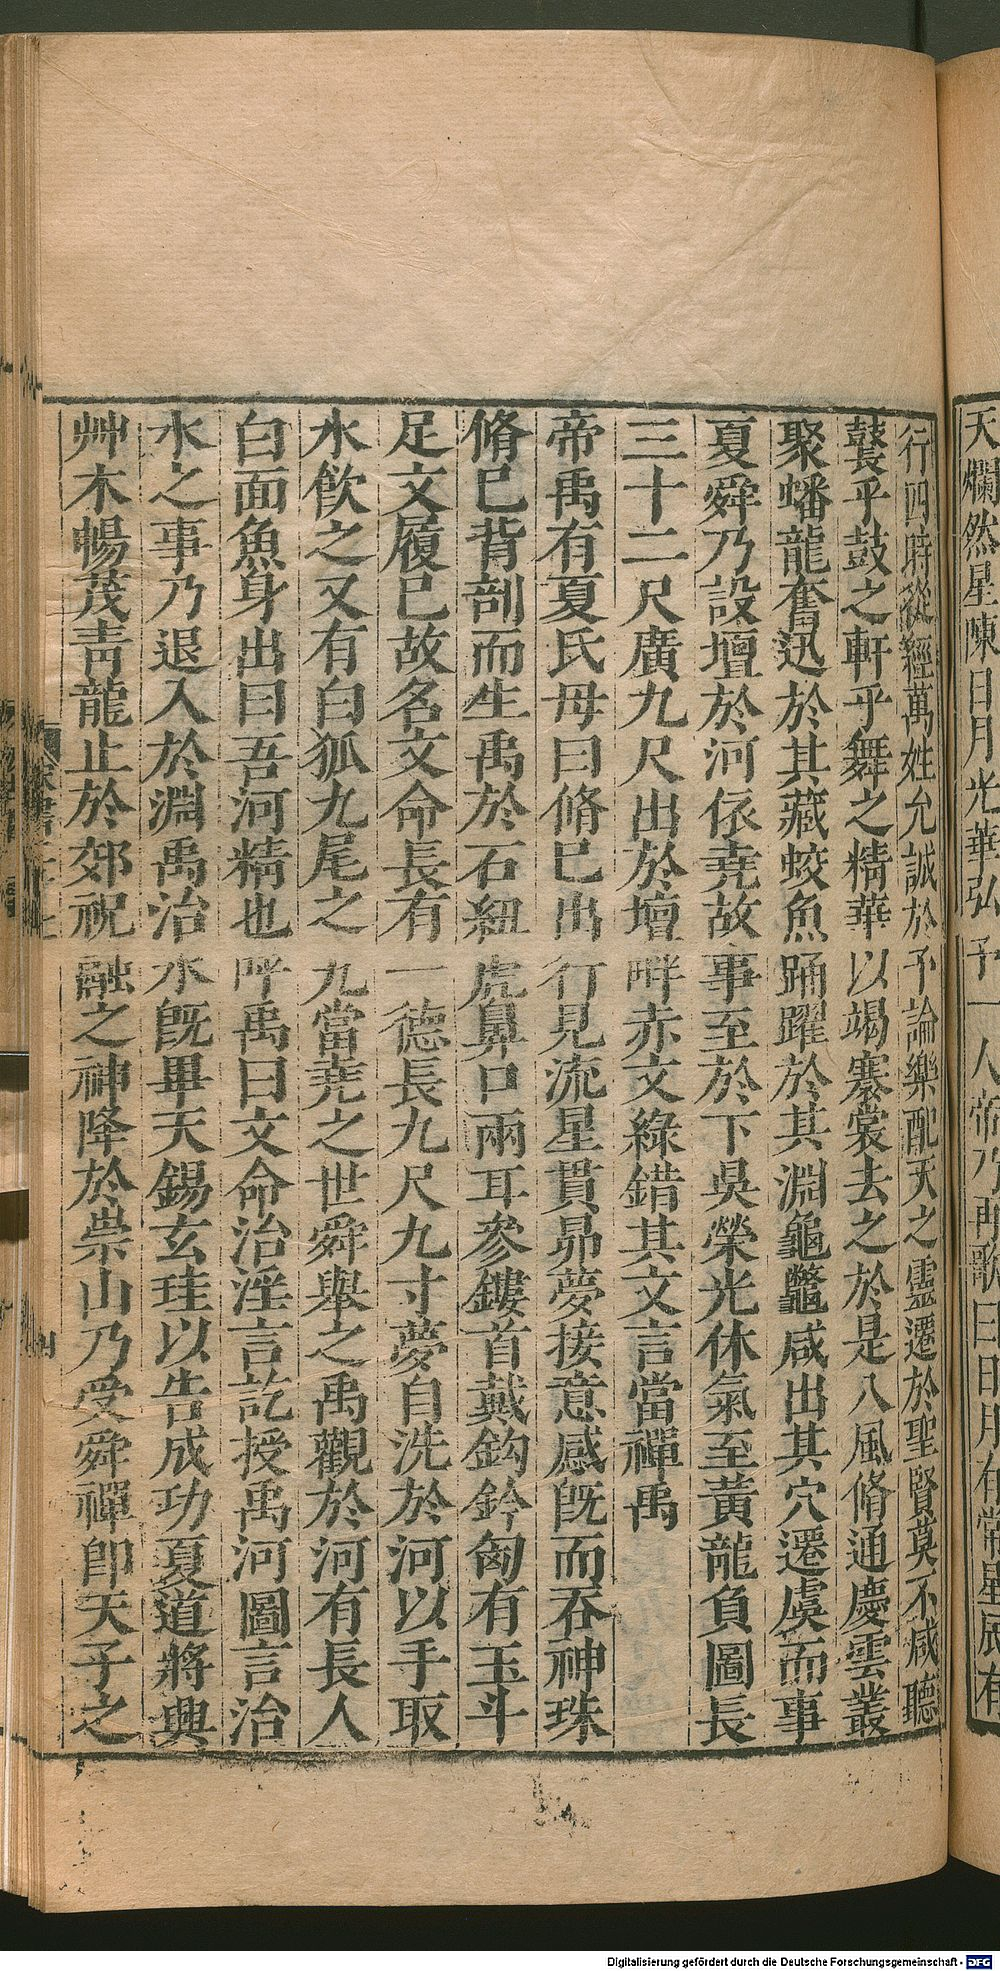 天爛然星陳日月光華弘予一人帝乃再歌曰日月有常星辰有
行四時從經萬姓允誠於予論樂配天之靈遷於聖賢莫不咸聽
鼚乎鼓之軒乎舞之精華以竭褰裳去之於是八風脩通慶雲叢
聚蟠龍奮迅於其藏蛟魚踊躍於其淵龜鼈咸出其穴遷虞而事
夏舜乃設壇於河依堯故事至於下吳榮光休氣至黃龍負圖長
三十二尺廣九尺出於壇畔赤文綠錯其文言當禪禹
帝禹有夏氏母曰脩巳出行見流星貫昴夢接意感旣而吞神珠
脩巳背剖而生禹於石紐虎鼻口兩耳參鏤首戴鈎鈐匈有玉斗
足文履巳故名文命長有一德長九尺九寸夢自洗於河以手取
水飮之又有白狐九尾之九當堯之世舜舉之禹觀於河有長人
白面魚身出曰吾河精也呼禹曰文命治淫言訖授禹河圖言治
水之事乃退入於淵禹治水旣畢天錫玄珪以告成功夏道將興
艸木暢茂靑龍止於郊祝融之神降於崇山乃受舜禪卽天子之
Digitalisierung gefördert durch die Deutsche Forschungsgemeinschaft - DFG